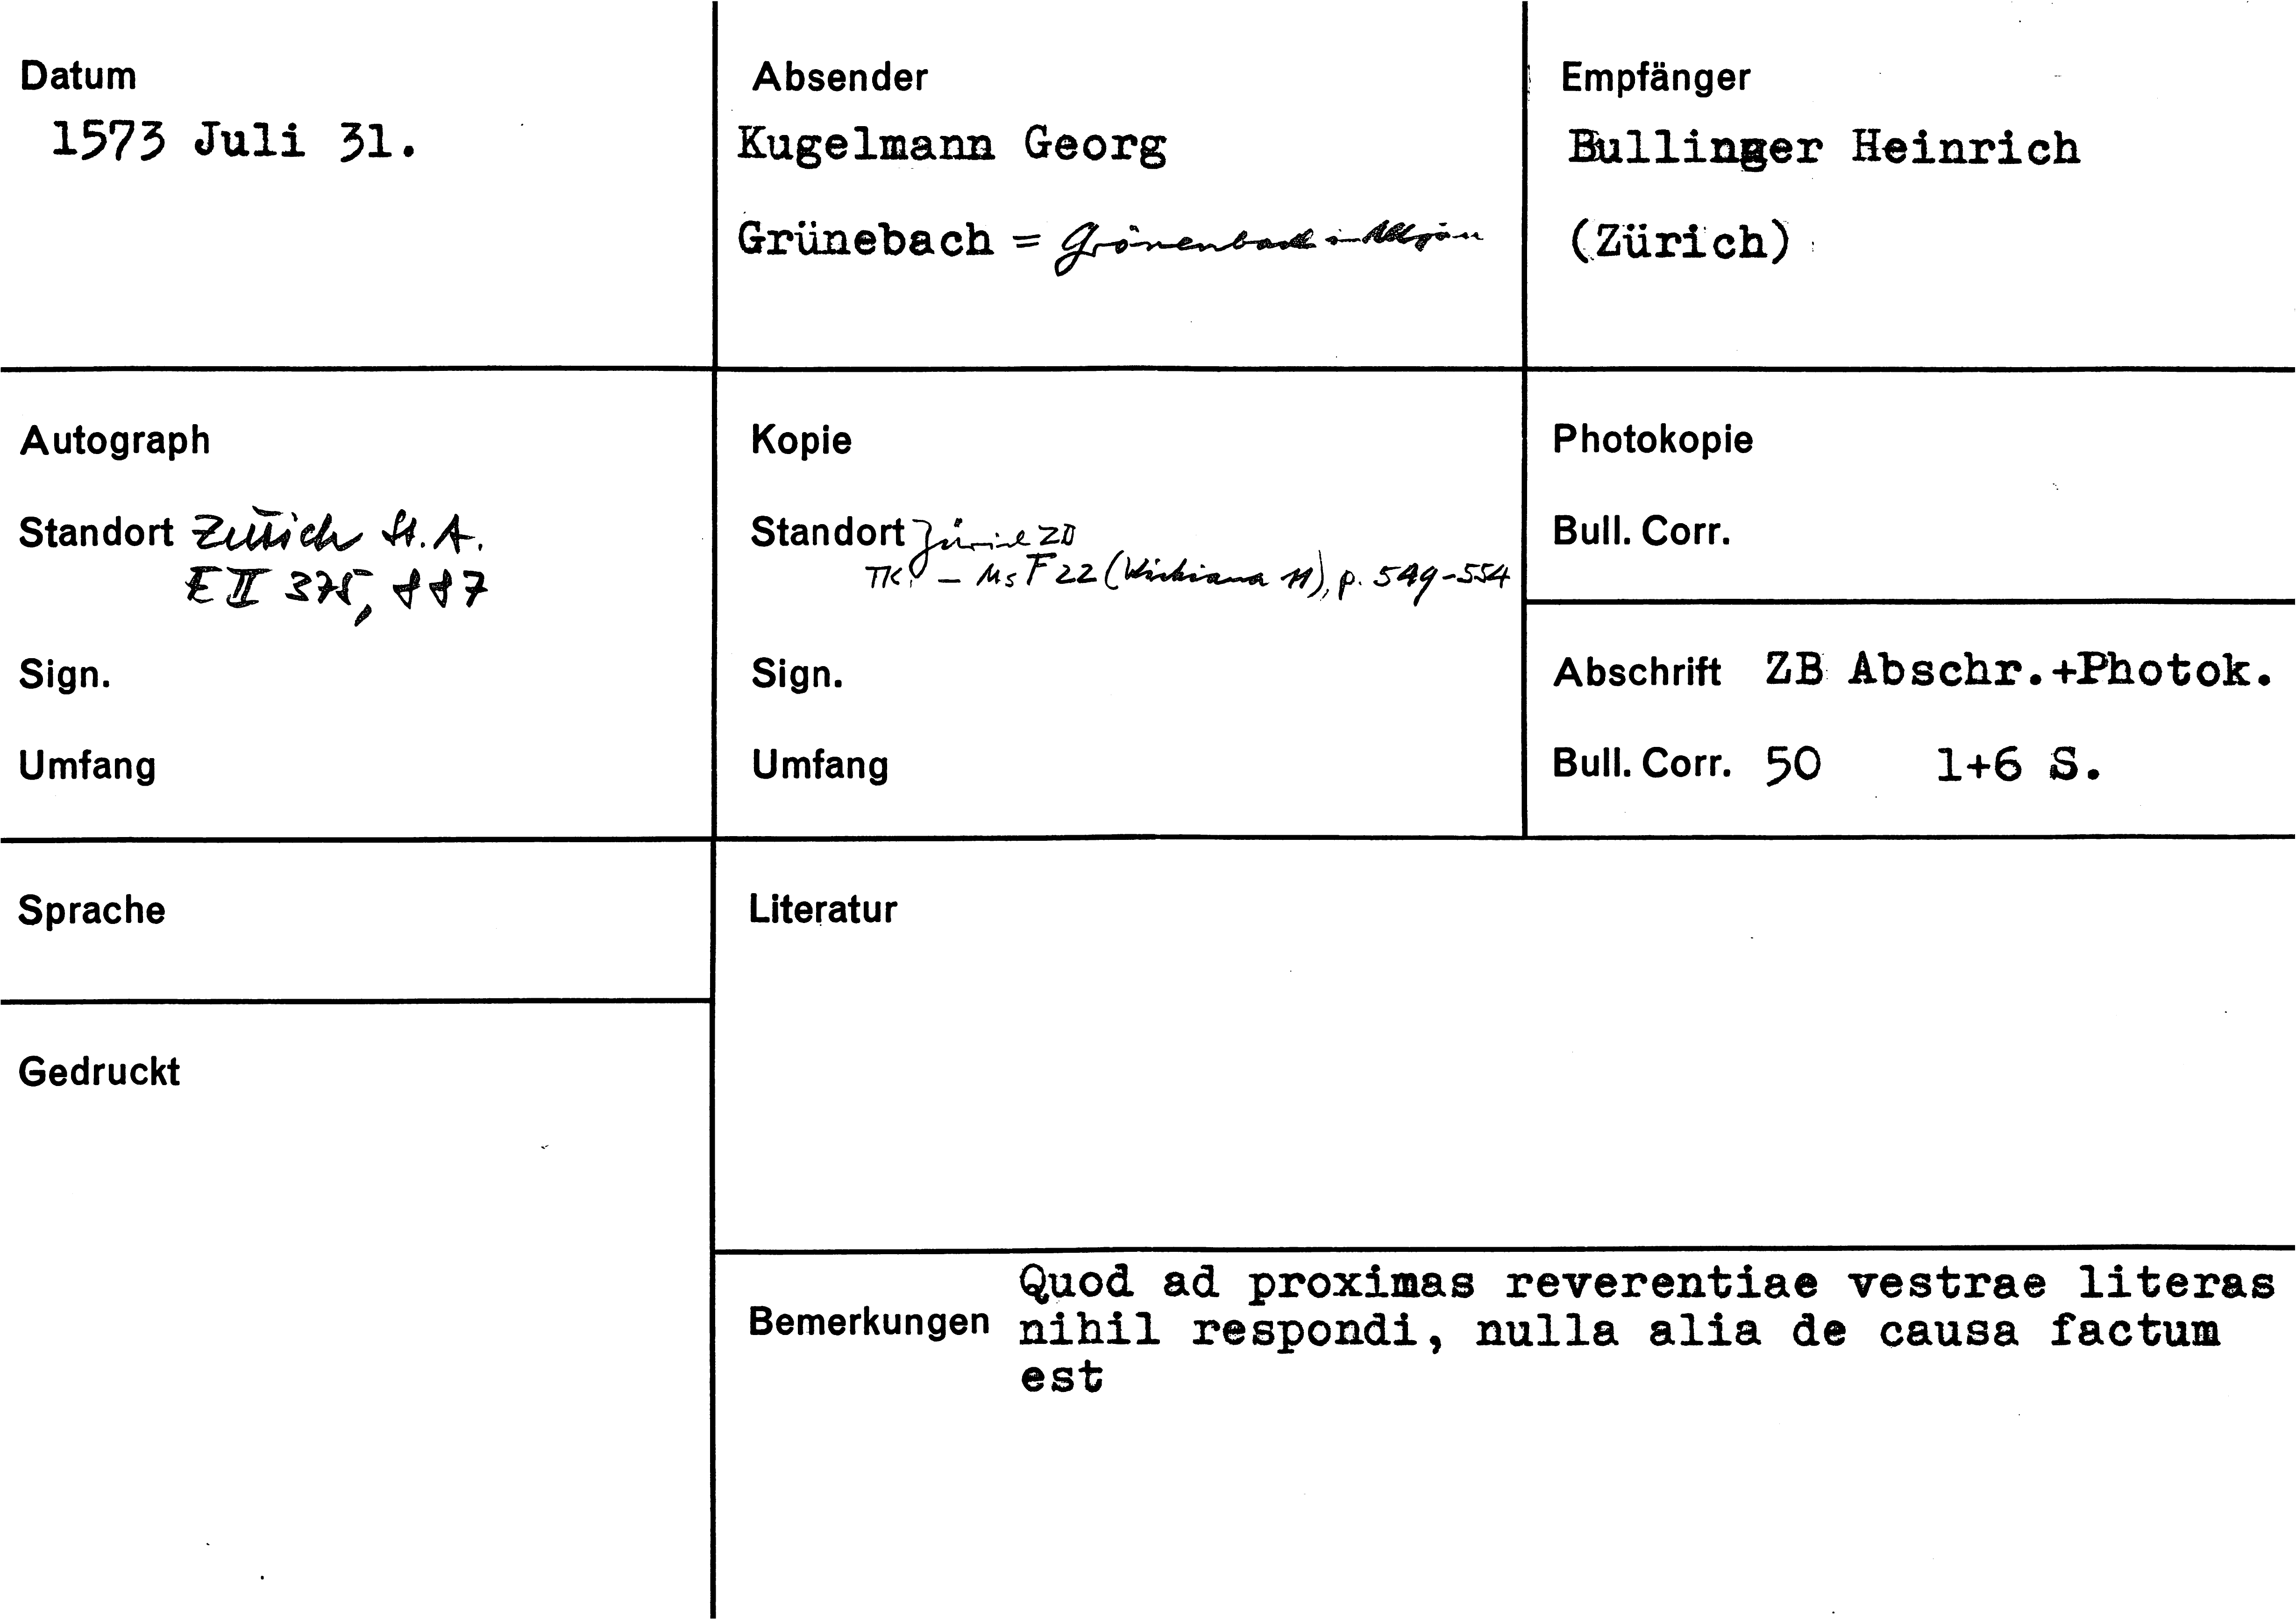 Datum
1573 Juli 31.
Absender
Kugelmann Georg
Grünebach = Grönenbach im Allgäu
Empfänger
Bullinger Heinrich
(Zürich)
Autograph
Standort Zürich St. A.
E II 375, 887
Sign.
Umfang
Kopie
Standort Zürich ZB
TK. - Ms F 22 (Wickiana 11), p. 549-554
Sign.
Umfang
Photokopie
Bull. Corr.
Abschrift ZB Abschr.+Photok.
Bull. Corr. 50 1+6 S.
Sprache
Gedruckt
Literatur
Bemerkungen
Quod ad proximas reverentiae vestrae literas
nihil respondi, nulla alia de causa factum
est